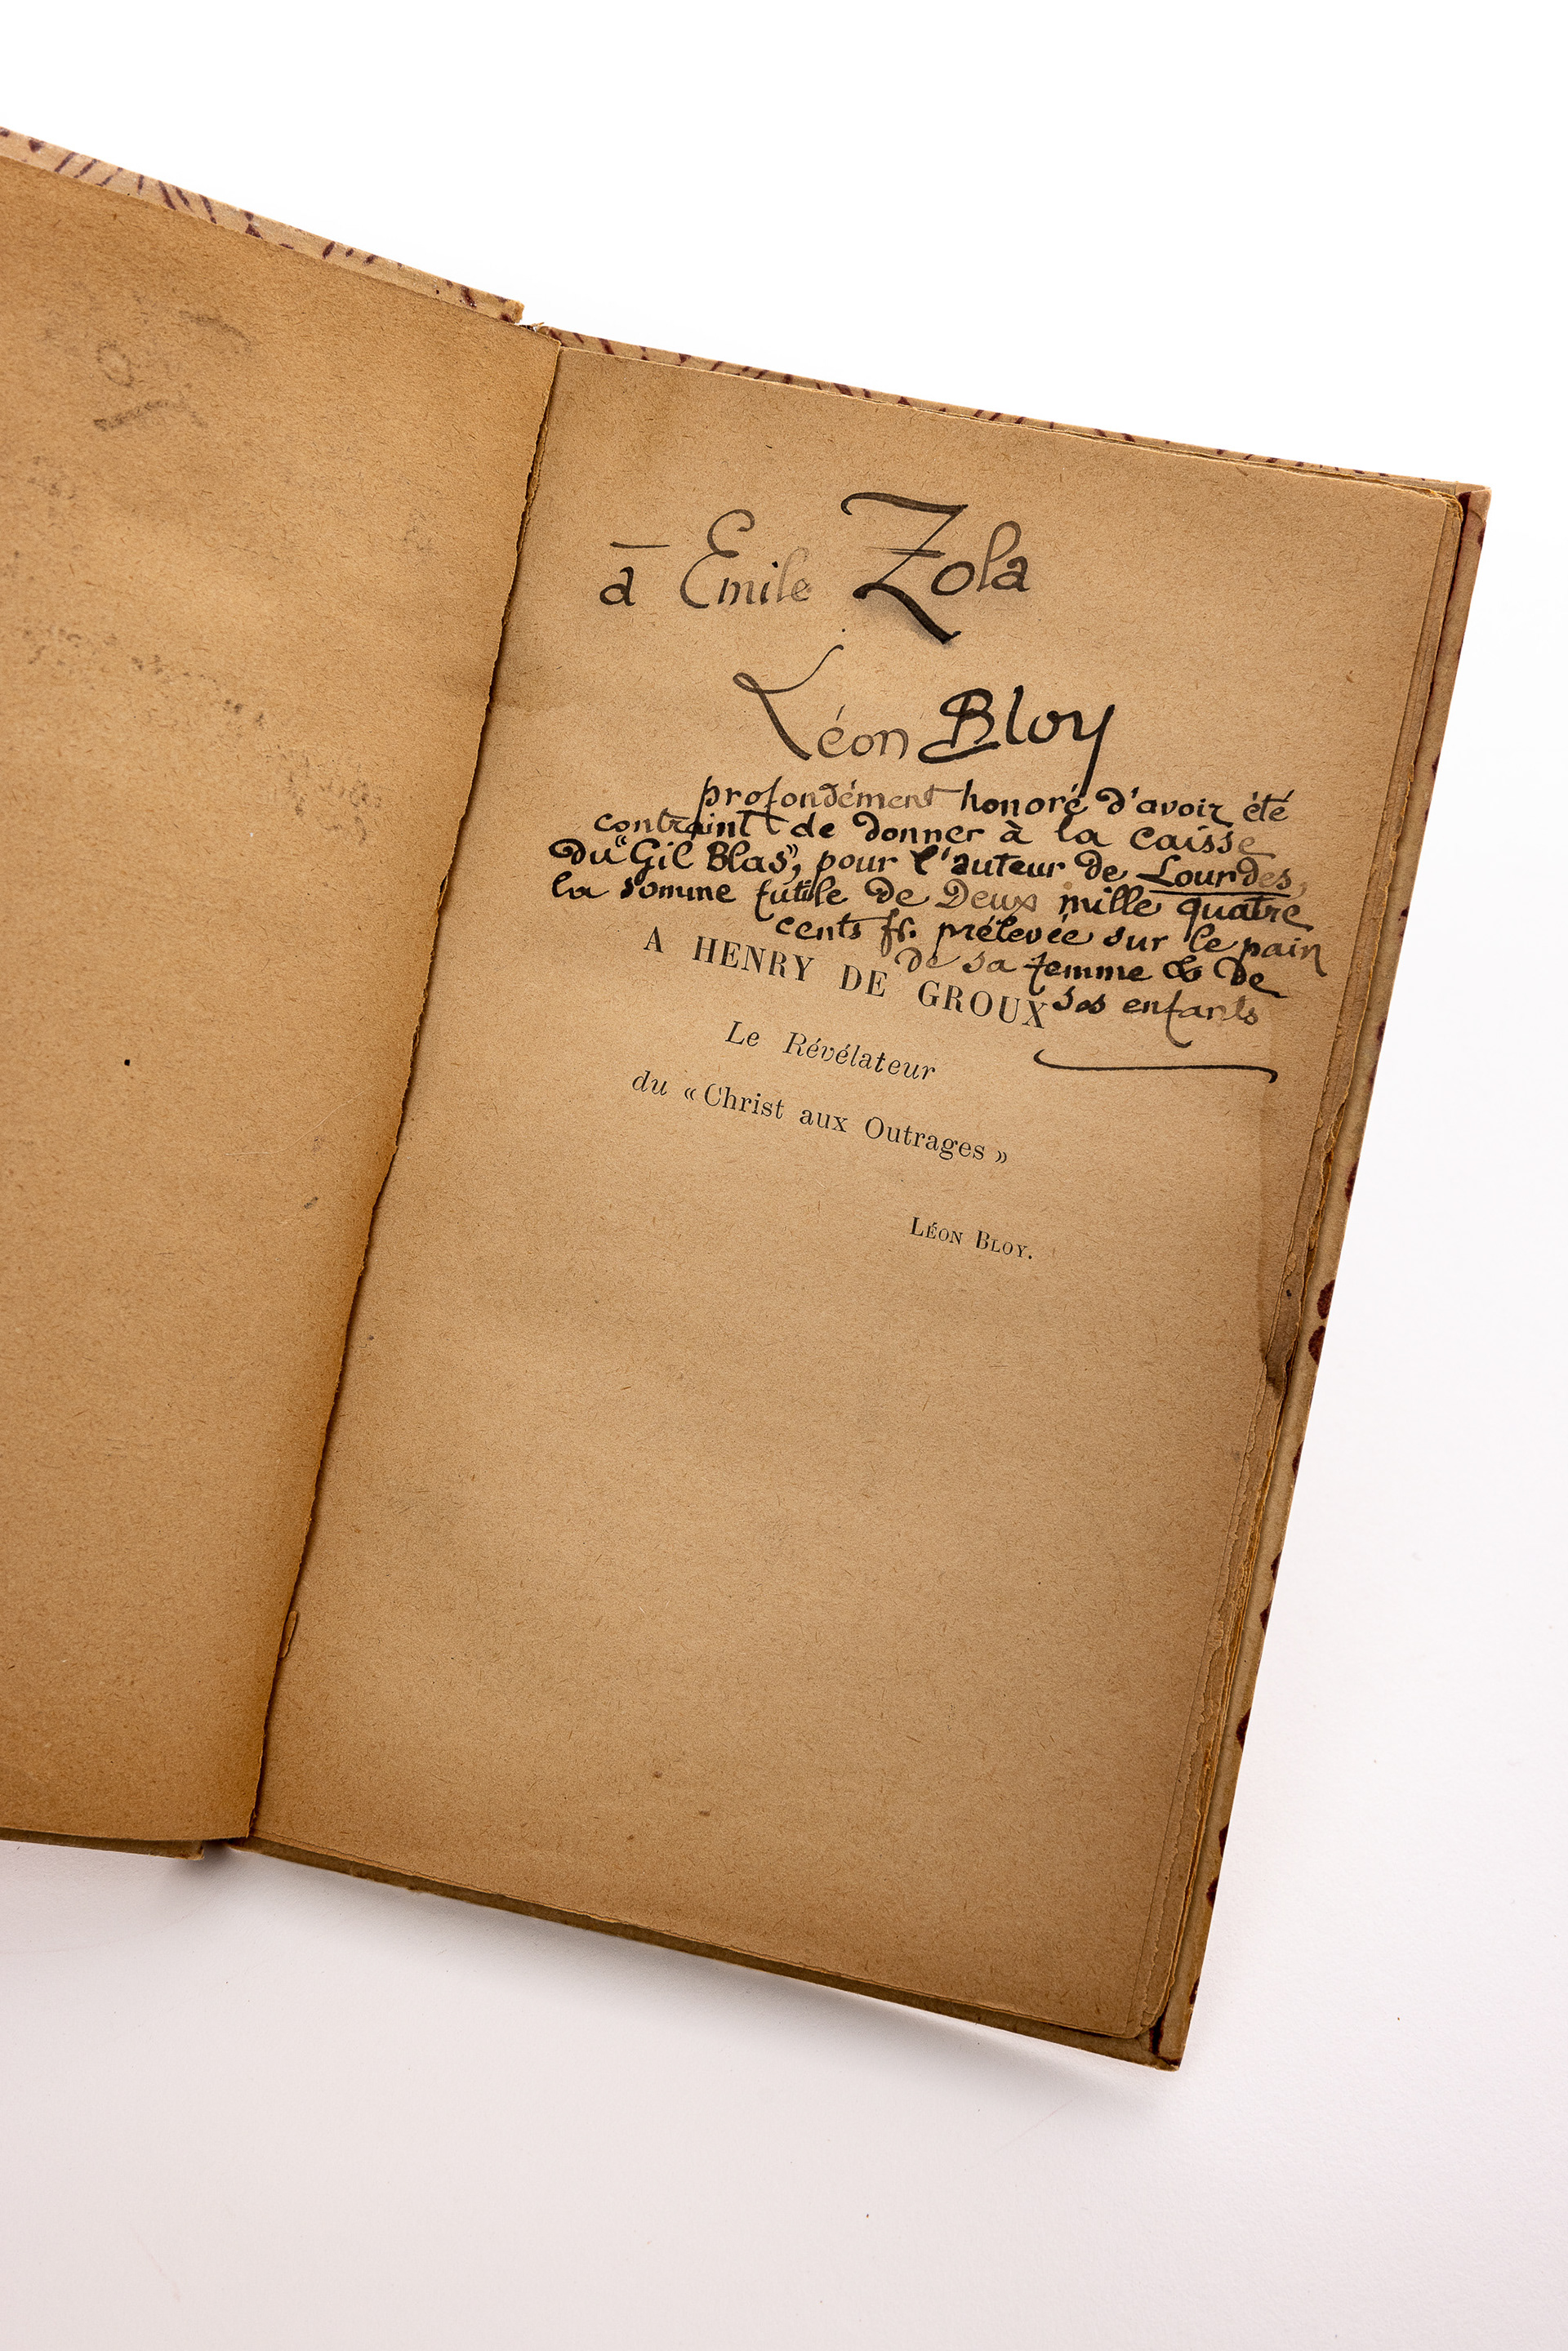 à Emile Zola
Léon Bloy
profondément honoré d'avoir été
contraint de donner à la caisse
du "Gil Blas", pour l'auteur de Lourdes,
la somme futile de Deux mille quatre
cents fr. prélevée sur le pain
de sa femme & de
ses enfants
A HENRY DE GROUX
Le Révélateur
du « Christ aux Outrages »
LÉON BLOY.